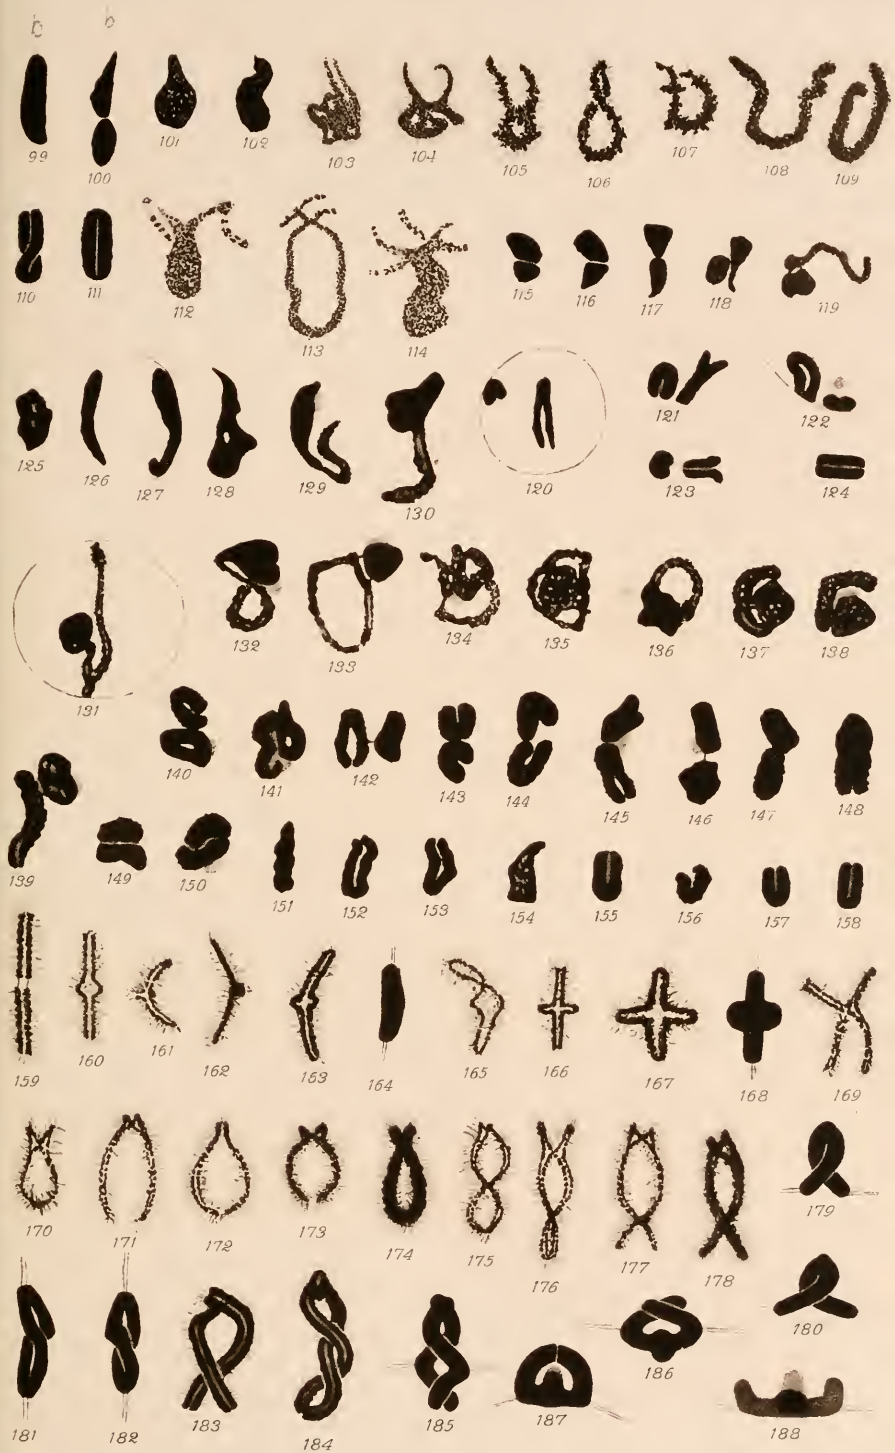 b b
99 100 101 102 103 104 105 106 107 108 109
110 111 112 113 114 115 116 117 118 119
125 126 127 128 129 130 120 121 122
123 124
131 132 133 134 135 136 137 138
140 141 142 143 144 145 146 147 148
139 149 150 151 152 153 154 155 156 157 158
159 160 161 162 163 164 165 166 167 168 169
170 171 172 173 174 175 176 177 178 179
180
181 182 183 184 185 186 187 188